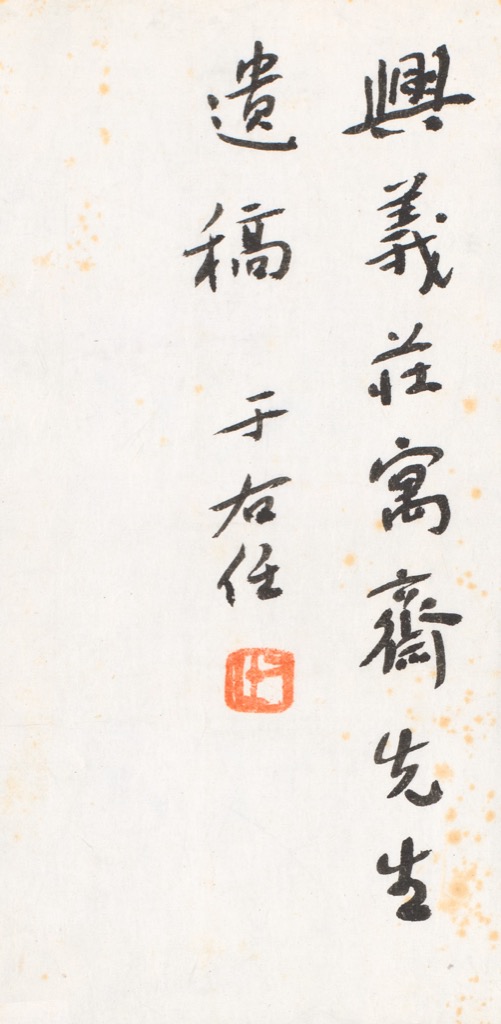 興義莊寓齋先生
遺稿 于右任